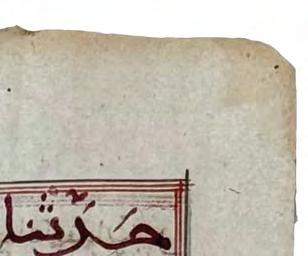 حَدَّثنا